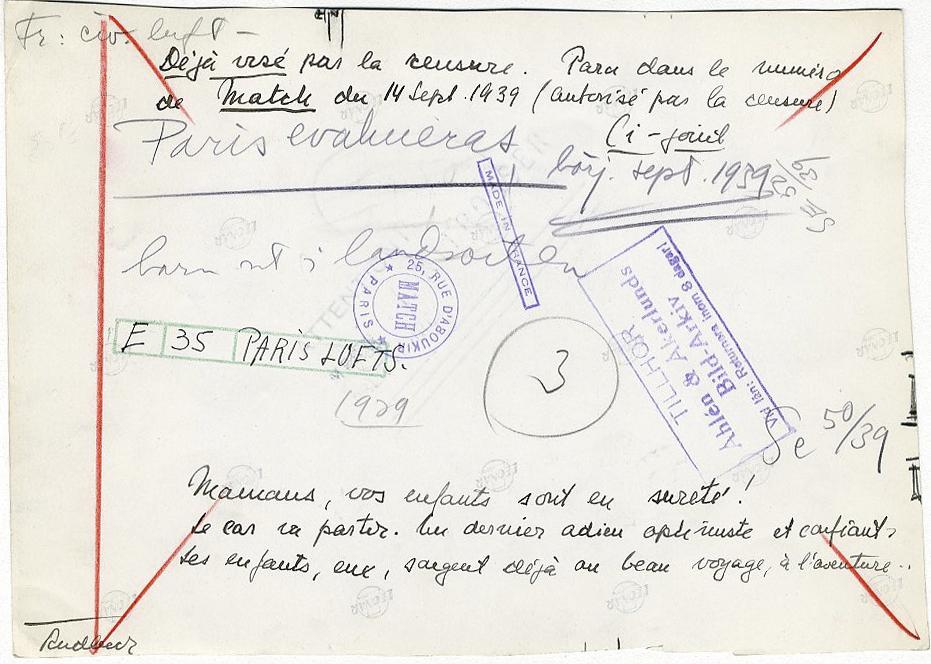 Fr: civ. luft –
Déjà visé par la censure. Paru dans le numéro
de Match du 14 Sept. 1939 (autorisé par la censure)
Ci-joint
Paris evakueras
börj. sept. 1939
MADE IN FRANCE
barn ut i landsorten
25, RUE D'ABOUKIR
MATCH
★ PARIS ★
TILLHÖR
Åhlén & Åkerlunds
Bild-Arkiv
Vid lån: Returnera inom 8 dagar!
E 35 PARIS LUFTS.
3
1939
Se 50/39
Mamans, vos enfants sont en sureté!
Le car va partir. Un dernier adieu optimiste et confiant,
Les enfants, eux, songent déjà au beau voyage, à l'aventure..
LEGVAR